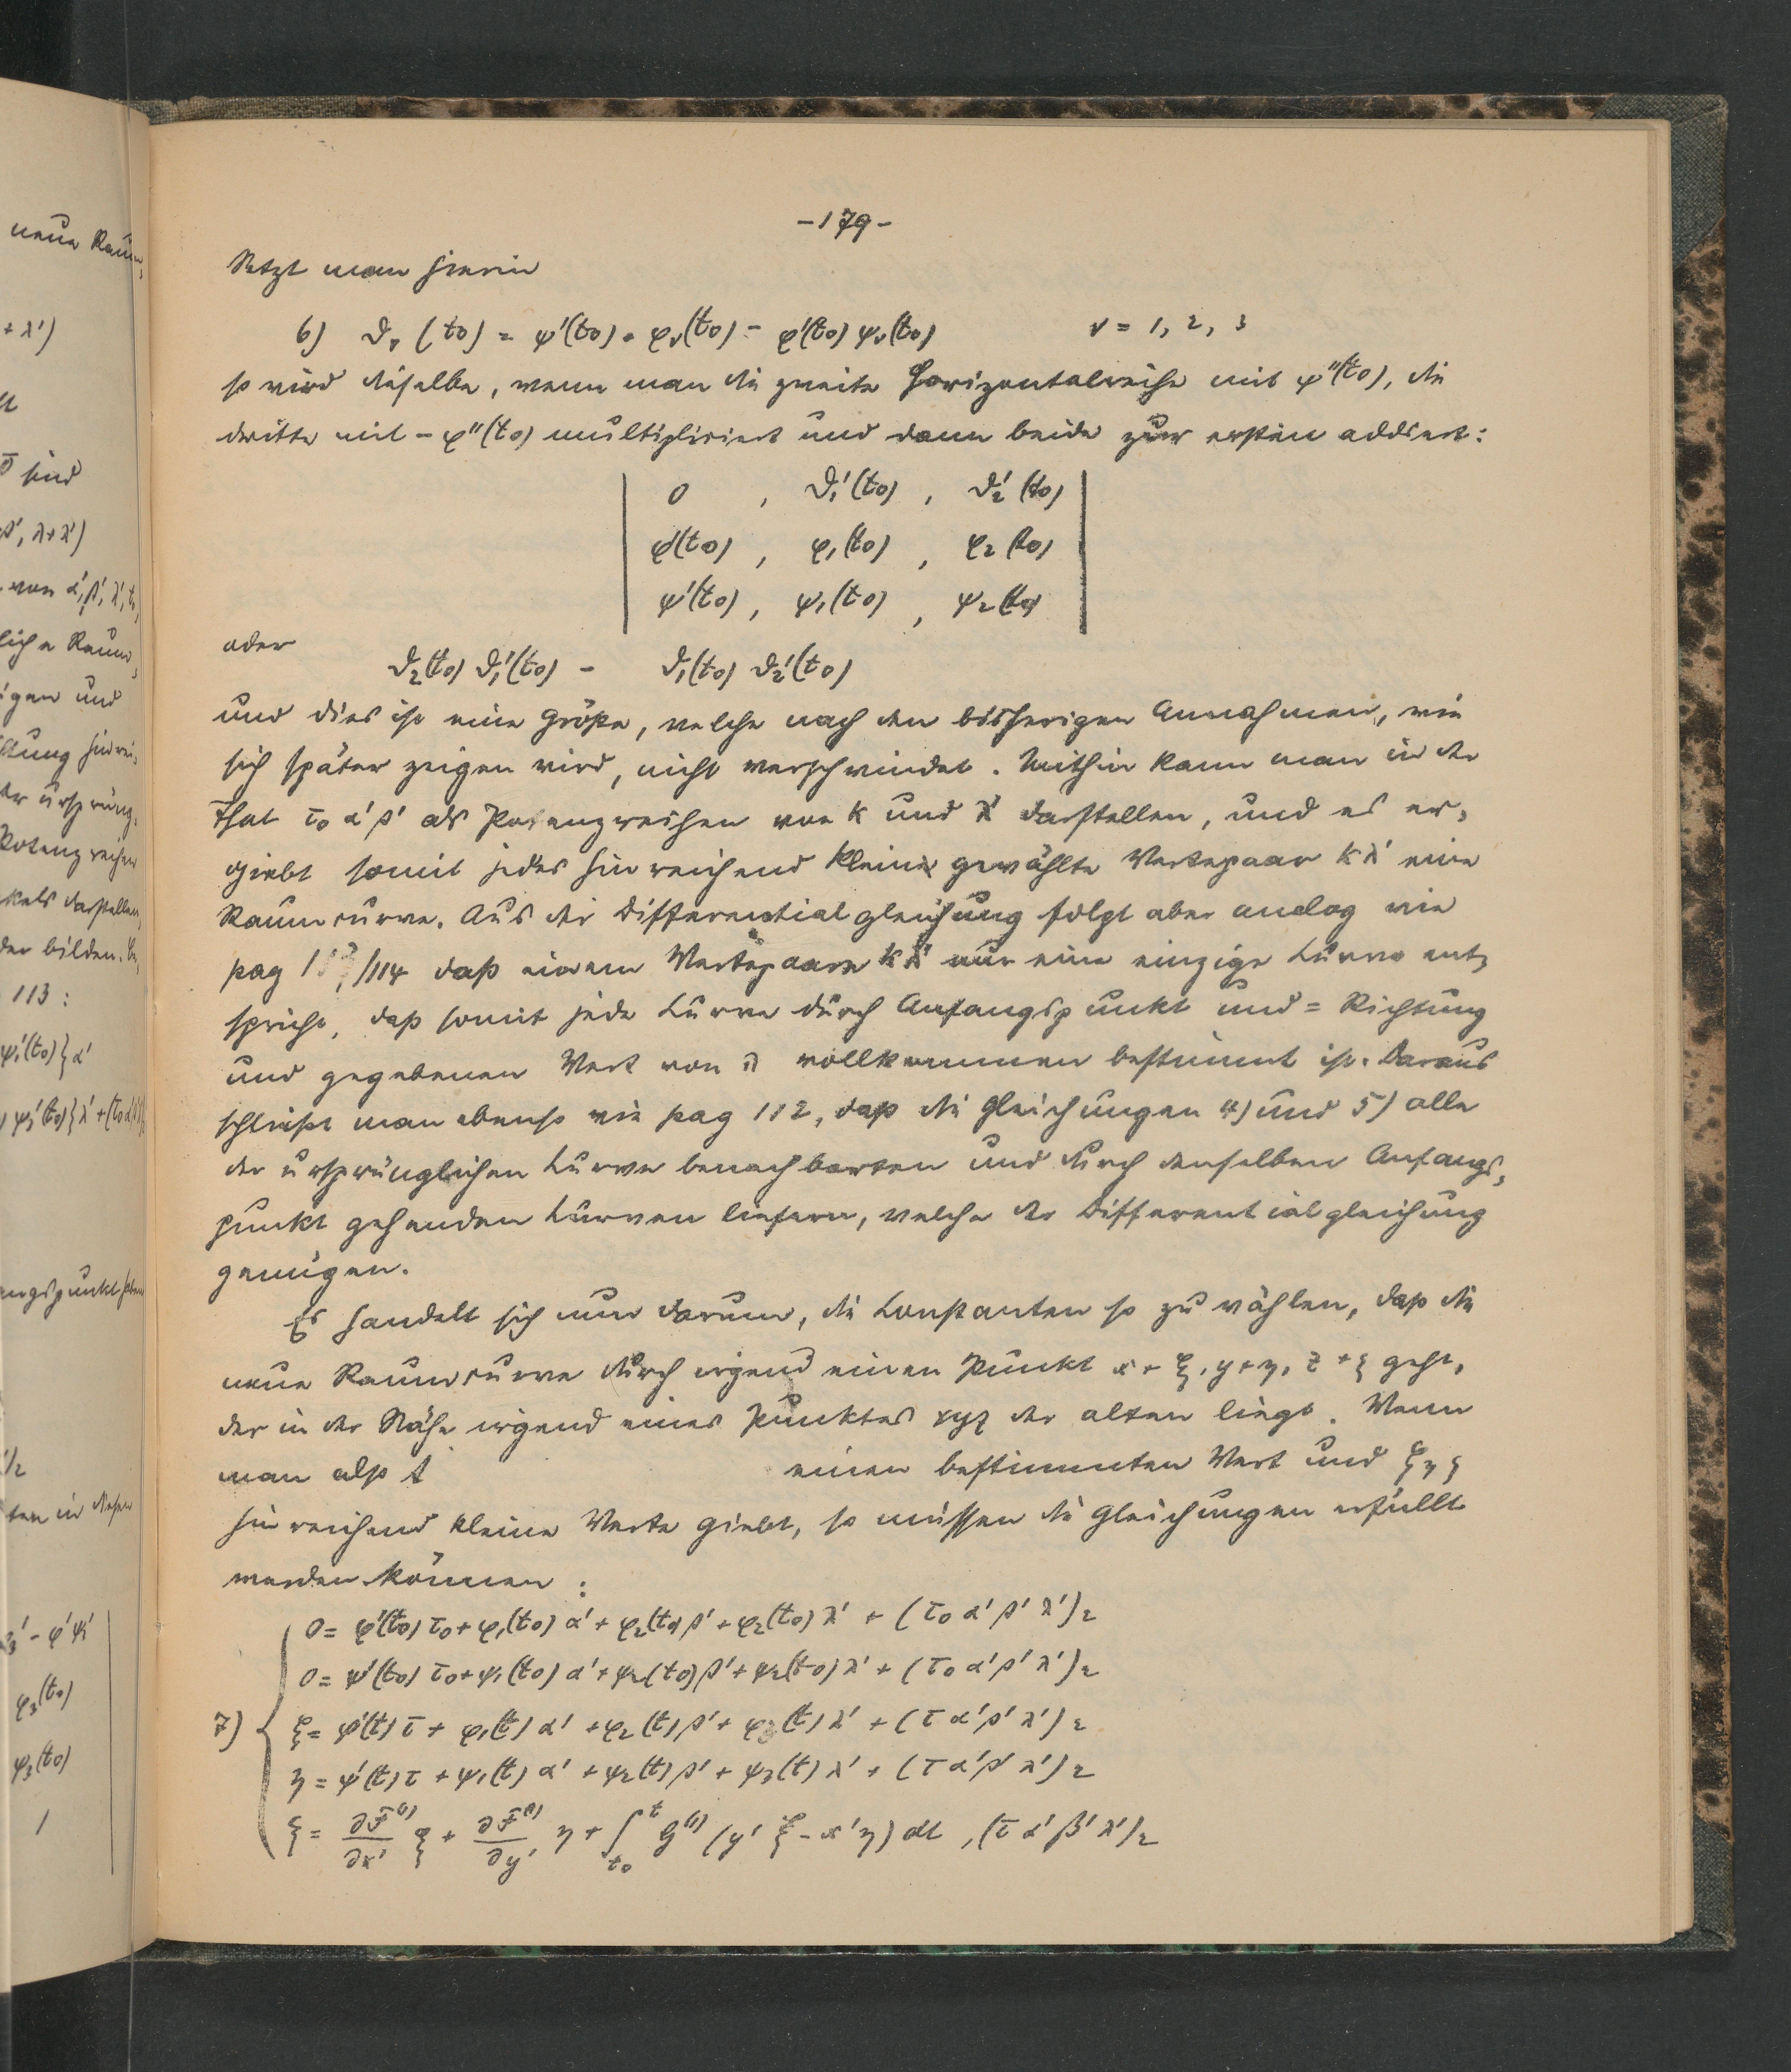 neue Raum-
+ λ')
sind
β', λ+λ')
von α', β', λ', t₀,
liche Raum-
igen und
ltung hinrei-
der ursprüng-
Potenzreihen
kels darstellen,
der bilden.
113 :
ψ₁'(t₀)} α'
angspunkt haben
1/2
ten in diesen
φ₃(t₀)
ψ₃(t₀)
1
- 179 -
Setzt man hierin
6) ϑᵥ(t₀) = ψ'(t₀) . φᵥ(t₀) - φ'(t₀) ψᵥ(t₀) ν = 1, 2, 3
so wird dieselbe, wenn man die zweite Horizontalreihe mit ψ''(t₀), die
dritte mit - φ''(t₀) multipliciert und dann beide zur ersten addiert:
| 0 , ϑ₁'(t₀) , ϑ₂'(t₀) |
| φ'(t₀) , φ₁(t₀) , φ₂(t₀) |
| ψ'(t₀) , ψ₁(t₀) , ψ₂(t₀) |
oder
ϑ₂(t₀) ϑ₁'(t₀) - ϑ₁(t₀) ϑ₂'(t₀)
und dies ist eine Größe, welche nach den bisherigen Annahmen, wie
sich später zeigen wird, nicht verschwindet. Mithin kann man in der
That τ₀ α' β' als Potenzreihen von k und λ' darstellen, und es er-
giebt somit jedes hinreichend klein gewählte Wertepaar k λ' eine
Raumcurve. Aus der Differentialgleichung folgt aber analog wie
pag 113/114 daß einem Wertepaare k λ' nur eine einzige Curve ent-
spricht, daß somit jede Curve durch Anfangspunkt und = Richtung
und gegebenen Wert von λ vollkommen bestimmt ist. Daraus
schließt man ebenso wie pag 112, daß die Gleichungen 4) und 5) alle
der ursprünglichen Curve benachbarten und durch denselben Anfangs-
punkt gehenden Curven liefern, welche der Differentialgleichung
genügen.
Es handelt sich nun darum, die Constanten so zu wählen, daß die
neue Raumcurve durch irgend einen Punkt x + ξ, y + η, z + ζ geht,
der in der Nähe irgend eines Punktes xyz der alten liegt. Wenn
man also t einen bestimmten Wert und ξ η ζ
hinreichend kleine Werte giebt, so müssen die Gleichungen erfüllt
werden können :
0 = φ'(t₀) τ₀ + φ₁(t₀) α' + φ₂(t₀) β' + φ₂(t₀) λ' + (τ₀ α' β' λ')₂
0 = ψ'(t₀) τ₀ + ψ₁(t₀) α' + ψ₂(t₀) β' + ψ₂(t₀) λ' + (τ₀ α' β' λ')₂
7) ξ = φ'(t) τ + φ₁(t) α' + φ₂(t) β' + φ₃(t) λ' + (τ α' β' λ')₂
η = ψ'(t) τ + ψ₁(t) α' + ψ₂(t) β' + ψ₃(t) λ' + (τ α' β' λ')₂
ζ = ∂F⁽¹⁾/∂x' ξ + ∂F⁽¹⁾/∂y' η + ∫_{t₀}^{t} G⁽¹⁾ (y' ξ - x' η) dt , (τ α' β' λ')₂